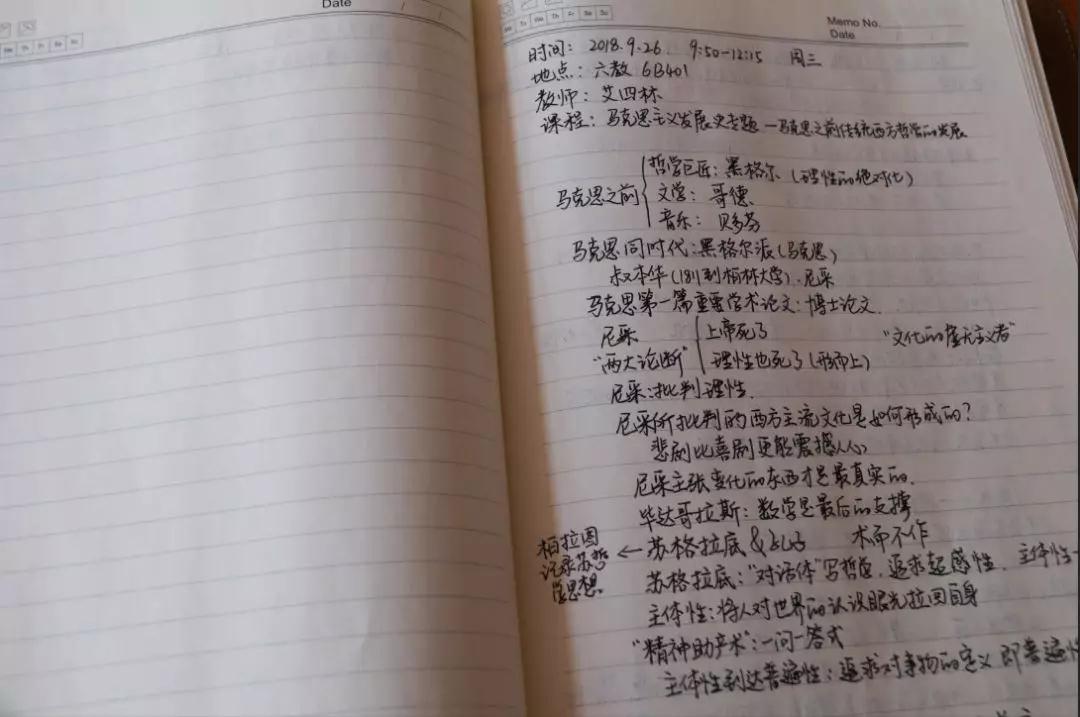 Date
Mo Tu We Th Fr Sa Su
Memo No.
Date
时间：2018.9.26 9:50-12:15 周三
地点：六教 6B401
教师：艾四林
课程：马克思主义发展史专题—马克思之前传统西方哲学的发展
马克思之前
哲学巨匠：黑格尔（理性的绝对化）
文学：哥德
音乐：贝多芬
马克思同时代：黑格尔派（马克思）
叔本华（1811到柏林大学）、尼采
马克思第一篇重要学术论文：博士论文
尼采
"两大论断"
上帝死了
理性也死了（形而上）
"文化的虚无主义者"
尼采：批判理性.
尼采所批判的西方主流文化是如何形成的？
悲剧比喜剧更能震撼人心
尼采主张变化的东西才是最真实的.
毕达哥拉斯：数学是最后的支撑
柏拉图
记录苏哲
学思想
←苏格拉底&孔子 术而不作
苏格拉底："对话体"写哲学,追求超感性、主体性
主体性：将人对世界的认识眼光拉回自身
"精神助产术"：一问一答式
主体性到达普遍性：追求对事物的定义 即普遍性